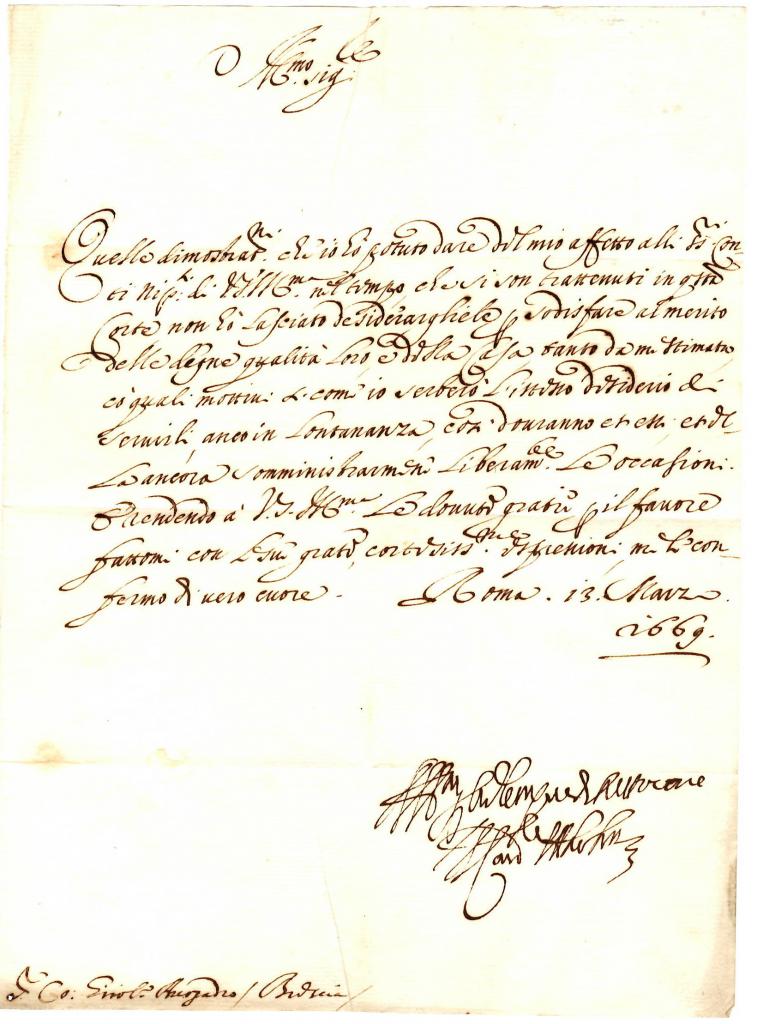 Ill.mo Sig.re
Quelle dimostrat.ni che io hò potuto dare del mio affetto alli SS.ri Con-
ti Nip.ti di V.S. Ill.ma nel tempo che si son trattenuti in q.sta
Corte non hò lasciato desiderargliele p sodisfare al merito
delle degne qualità loro, e della Casa tanto da me stimata,
cò quali mottiui si come io serberò l'istesso desiderio di
seruirli anco in lontananza, così douranno et essi, et el-
la ancora somministrarmene liberam.te le occasioni.
E rendendo à V.S. Ill.ma le douute gratie p il fauore
fattomi con le sue grate, cortesiss.me espressioni, me le con-
fermo di uero cuore. Roma. 13. Marzo.
1669.
di
Il Card
S. Co: Girol.o Auogadro / Brescia /